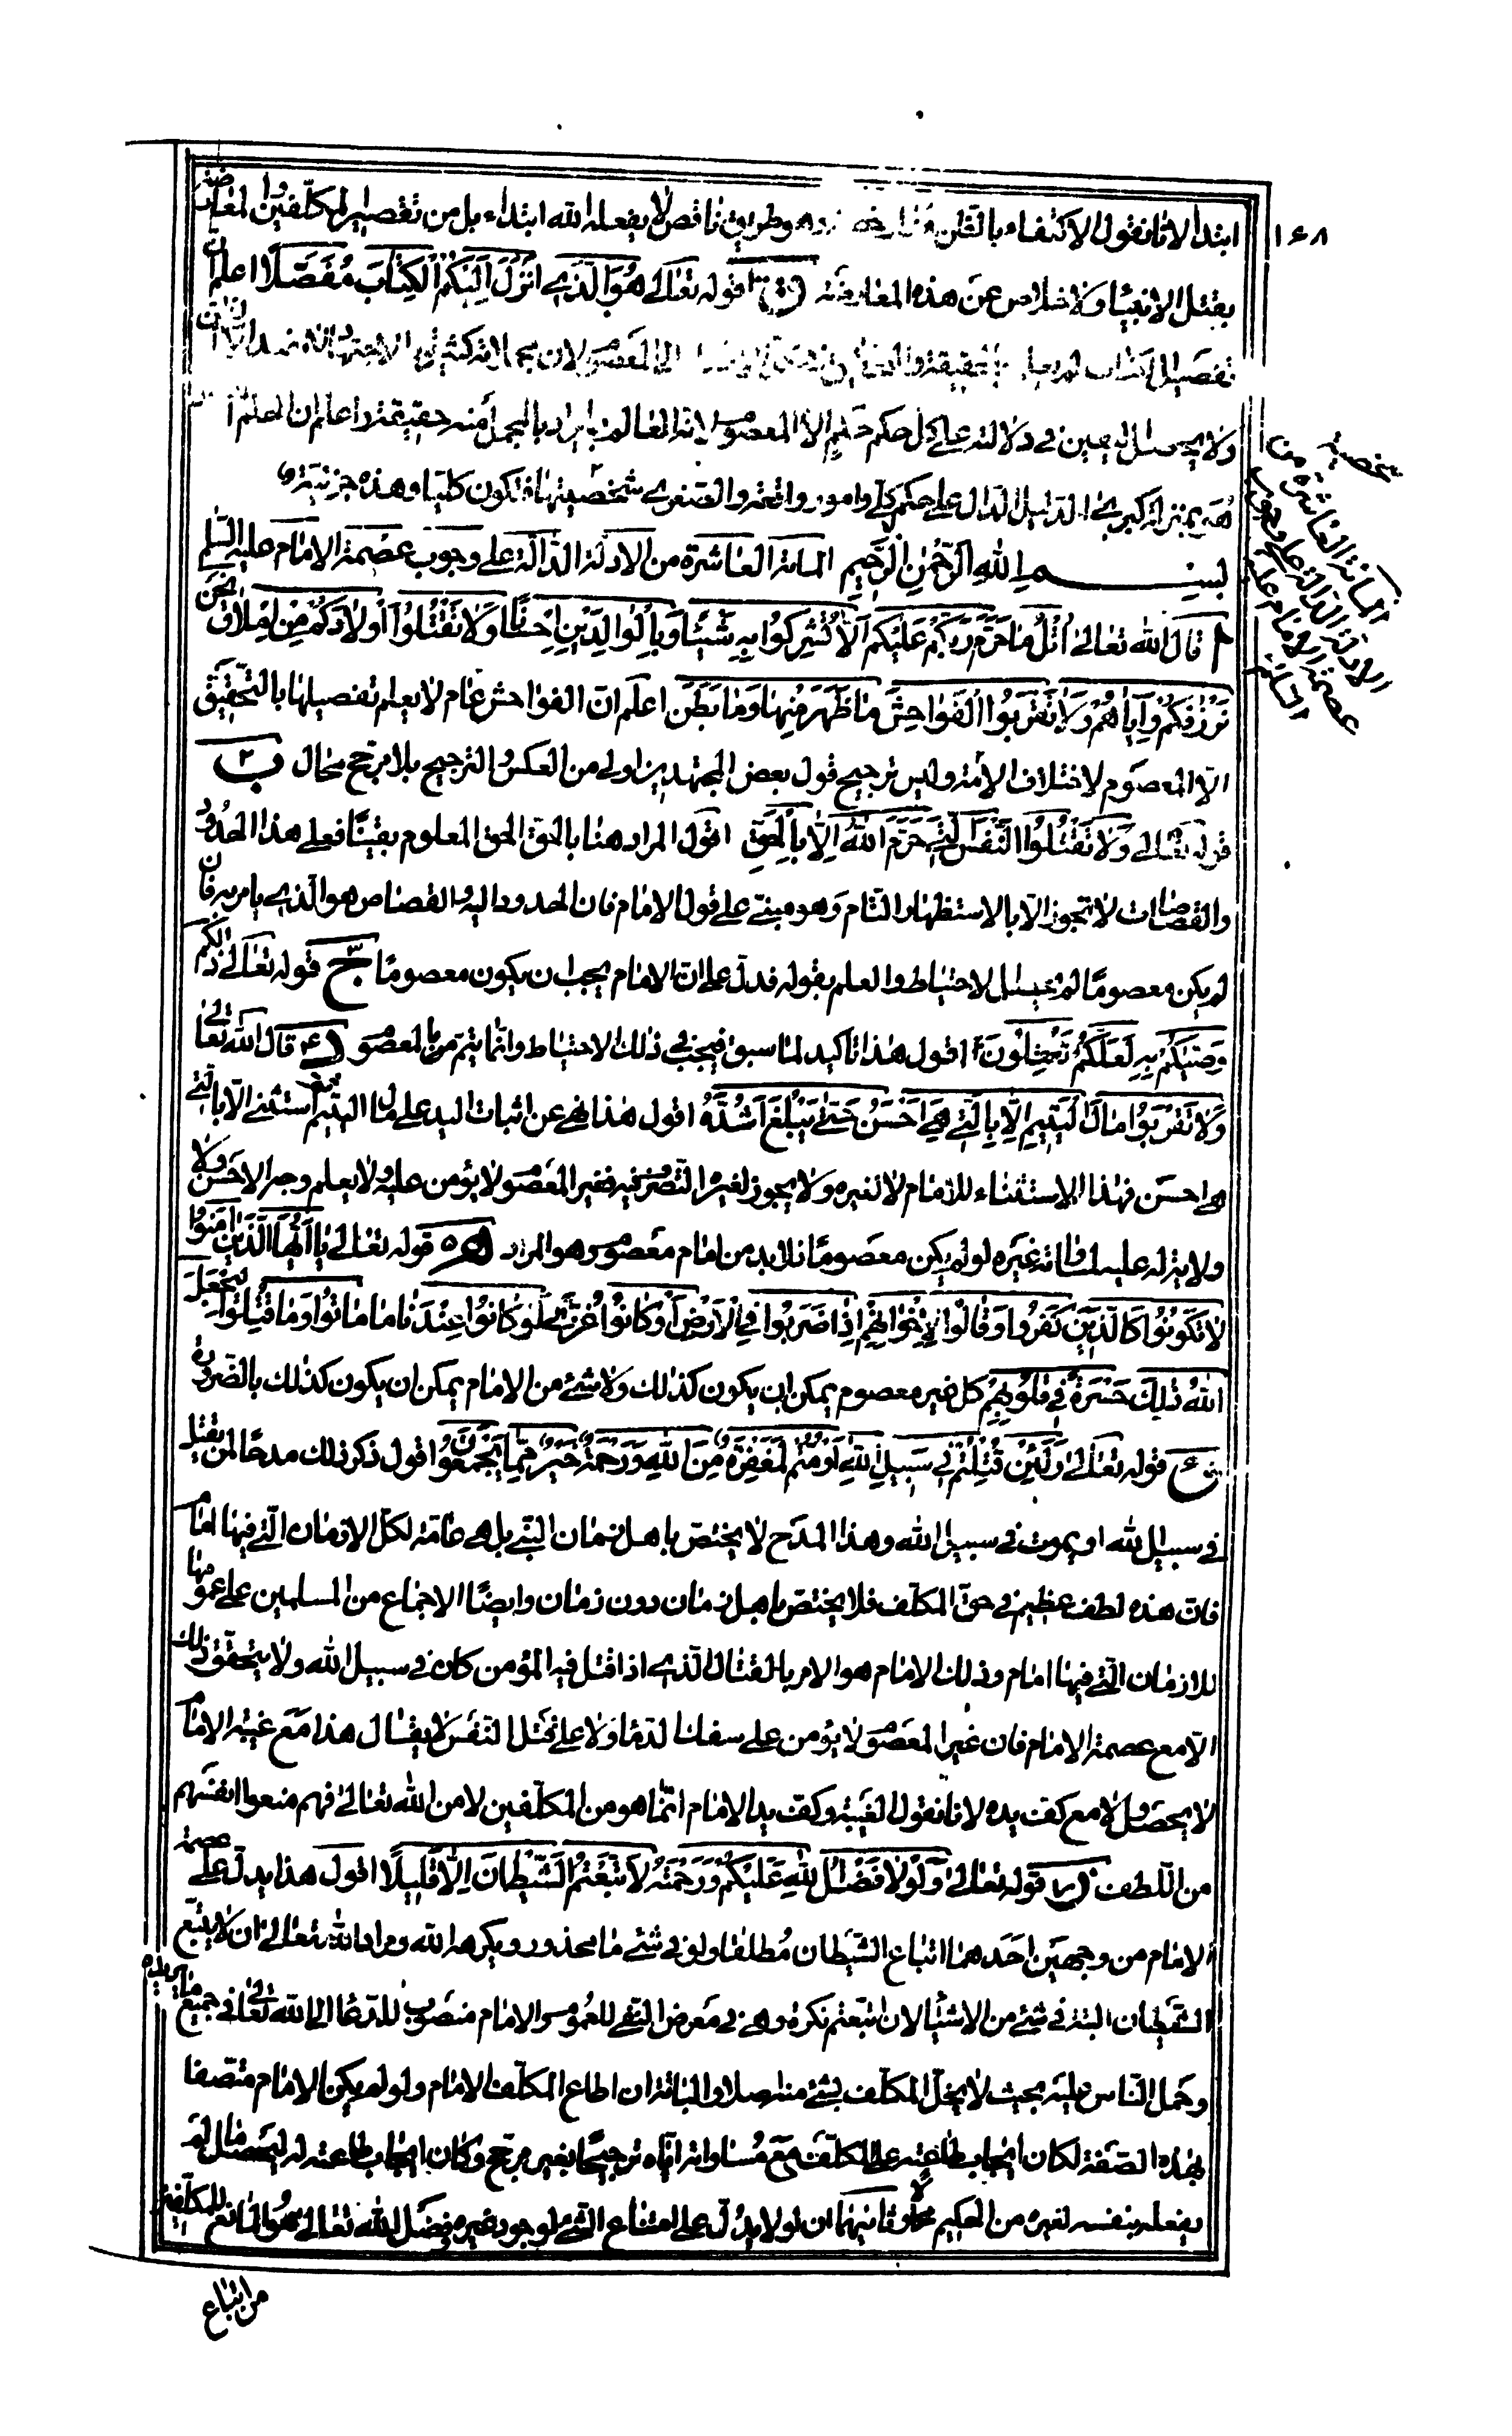 ١٤٨
ابتداء لانا نقول الاكتفاء بالظن وطريق ناقص لا يفعله الله ابتداء بل من تقصير المكلفين
بقتل الانبياء ولا خلاص عن هذه المعارضة قوله تعالى هُوَ الَّذِي أَنْزَلَ إِلَيْكُمُ الْكِتَابَ مُفَصَّلًا اعلم ان
تفصيل الكتاب
ولا يحصل اليقين في دلالته على كل حكم حكم الا المعصوم لانه العالم بالمراد بالمجمل منه حقيقة واعلم ان
هو بمنزلة كبرى الدليل الدال على حكم كلي وامور واقعة والصغرى شخصيتها فتكون كليا وهذه جزئية
بسم الله الرَّحْمٰنِ الرَّحِيمِ المائة العاشرة من الادلة الدالة على وجوب عصمة الامام عليه السلم
ا قال الله تعالى أَتْلُ مَا حَرَّمَ رَبُّكُمْ عَلَيْكُمْ أَلَّا تُشْرِكُوا بِهِ شَيْئًا وَبِالْوَالِدَيْنِ إِحْسَانًا وَلَا تَقْتُلُوا أَوْلَادَكُمْ مِنْ إِمْلَاقٍ نَحْنُ
نَرْزُقُكُمْ وَإِيَّاهُمْ وَلَا تَقْرَبُوا الْفَوَاحِشَ مَا ظَهَرَ مِنْهَا وَمَا بَطَنَ اعلم ان الفواحش عام لا يعلم تفصيلها بالتحقيق
الا المعصوم لاختلاف الأمة وليس ترجيح قول بعض المجتهدين اولى من العكس والترجيح بلا مرجح محال ب ٢
قوله تعالى وَلَا تَقْتُلُوا النَّفْسَ الَّتِي حَرَّمَ اللَّهُ إِلَّا بِالْحَقِّ اقول المراد هنا بالحق الحق المعلوم يقينًا فعلى هذا الحدود
والقصاصات لا تجوز الا بالاستظهار التام وهو مبني على قول الامام فان الحدود اليه والقصاص هو الذي يامر به فان
لم يكن معصومًا لم يحصل الاحتياط والعلم بقوله فدل على ان الامام يجب ان يكون معصومًا ج ٣ قوله تعالى ذَلِكُمْ
وَصَّيكُمْ بِهِ لَعَلَّكُمْ تَعْقِلُونَ اقول هذا تاكيد لما سبق فيجب في ذلك الاحتياط وانما يتم من المعصوم د ٤ قال الله تعالى
وَلَا تَقْرَبُوا مَالَ الْيَتِيمِ إِلَّا بِالَّتِي هِيَ أَحْسَنُ حَتَّى يَبْلُغَ أَشُدَّهُ اقول هذا نهي عن اثبات اليد على مال اليتيم ثم استثنى الا بالتي
هي احسن فهذا الاستثناء للامام لا لغيره ولا يجوز لغيره التصرف فيه فغير المعصوم لا يؤمن عليه ولا يعلم وجه الاحسن ولا
ولا يترك عليه غيره لو لم يكن معصومًا فلابد من امام معصوم وهو المراد ه ٥ قوله تعالى يَا أَيُّهَا الَّذِينَ آمَنُوا
لَا تَكُونُوا كَالَّذِينَ كَفَرُوا وَقَالُوا لِإِخْوَانِهِمْ إِذَا ضَرَبُوا فِي الْأَرْضِ أَوْ كَانُوا غُزًّى لَوْ كَانُوا عِنْدَنَا مَا مَاتُوا وَمَا قُتِلُوا لِيَجْعَلَ
اللَّهُ ذَلِكَ حَسْرَةً فِي قُلُوبِهِمْ كل غير معصوم يمكن ان يكون كذلك ولا شئ من الامام يمكن ان يكون كذلك بالضرورة
و ٦ قوله تعالى وَلَئِنْ قُتِلْتُمْ فِي سَبِيلِ اللَّهِ أَوْ مُتُّمْ لَمَغْفِرَةٌ مِنَ اللَّهِ وَرَحْمَةٌ خَيْرٌ مِمَّا يَجْمَعُونَ اقول ذكر ذلك مدحًا لمن يقتل
في سبيل الله او يموت في سبيل الله وهذا المدح لا يختص باهل زمان النبي بل هي عامة لكل الازمان التي فيها امام
فان هذه لطف عظيم في حق المكلف فلا يختص باهل زمان دون زمان وايضًا الاجماع من المسلمين على عمومها
للازمان التي فيها امام وذلك الامام هو الامر بالقتال الذي اذا قتل فيه المؤمن كان في سبيل الله ولا يتحقق ذلك
الا مع عصمة الامام فان غير المعصوم لا يؤمن على سفك الدماء ولا على قتل النفس لا يقال هذا مع غيبة الامام
لا يحصل ولا مع كف يده لانا نقول الغيبة وكف يد الامام انما هو من المكلفين لا من الله تعالى فهم منعوا انفسهم
من اللطف ز ٧ قوله تعالى وَلَوْلَا فَضْلُ اللَّهِ عَلَيْكُمْ وَرَحْمَتُهُ لَاتَّبَعْتُمُ الشَّيْطَانَ إِلَّا قَلِيلًا اقول هذا يدل على عصمة
الامام من وجهين احدهما اتباع الشيطان مطلقا ولو في شئ ما محذور ويكرهه الله ومراد الله تعالى ان لا يتبع
الشيطان البتة في شئ من الاشياء لان اتبعتم نكرة وهي في معرض النفي للعموم والامام منصوب للدعاء الى الله تعالى في جميع ما يريده
وحمل الناس عليه بحيث لا يخل المكلف بشئ منه اصلا والبتة ان اطاع المكلف الامام ولو لم يكن الامام متصفا
بهذه الصفة لكان ايجاب طاعته على المكلف مع مساواته اياه ترجيحًا بغير مرجح وكان ايجاب طاعته له ليحصل ما لم
يفعله بنفسه لغيره من الحكيم محال وثانيهما ان لولا يدل على امتناع الشئ لوجود غيره ففضل الله تعالى هو المانع للمكلفين
من اتباع
المائة العاشرة من
الادلة الدالة على وجوب
عصمة الامام عليه
السلم